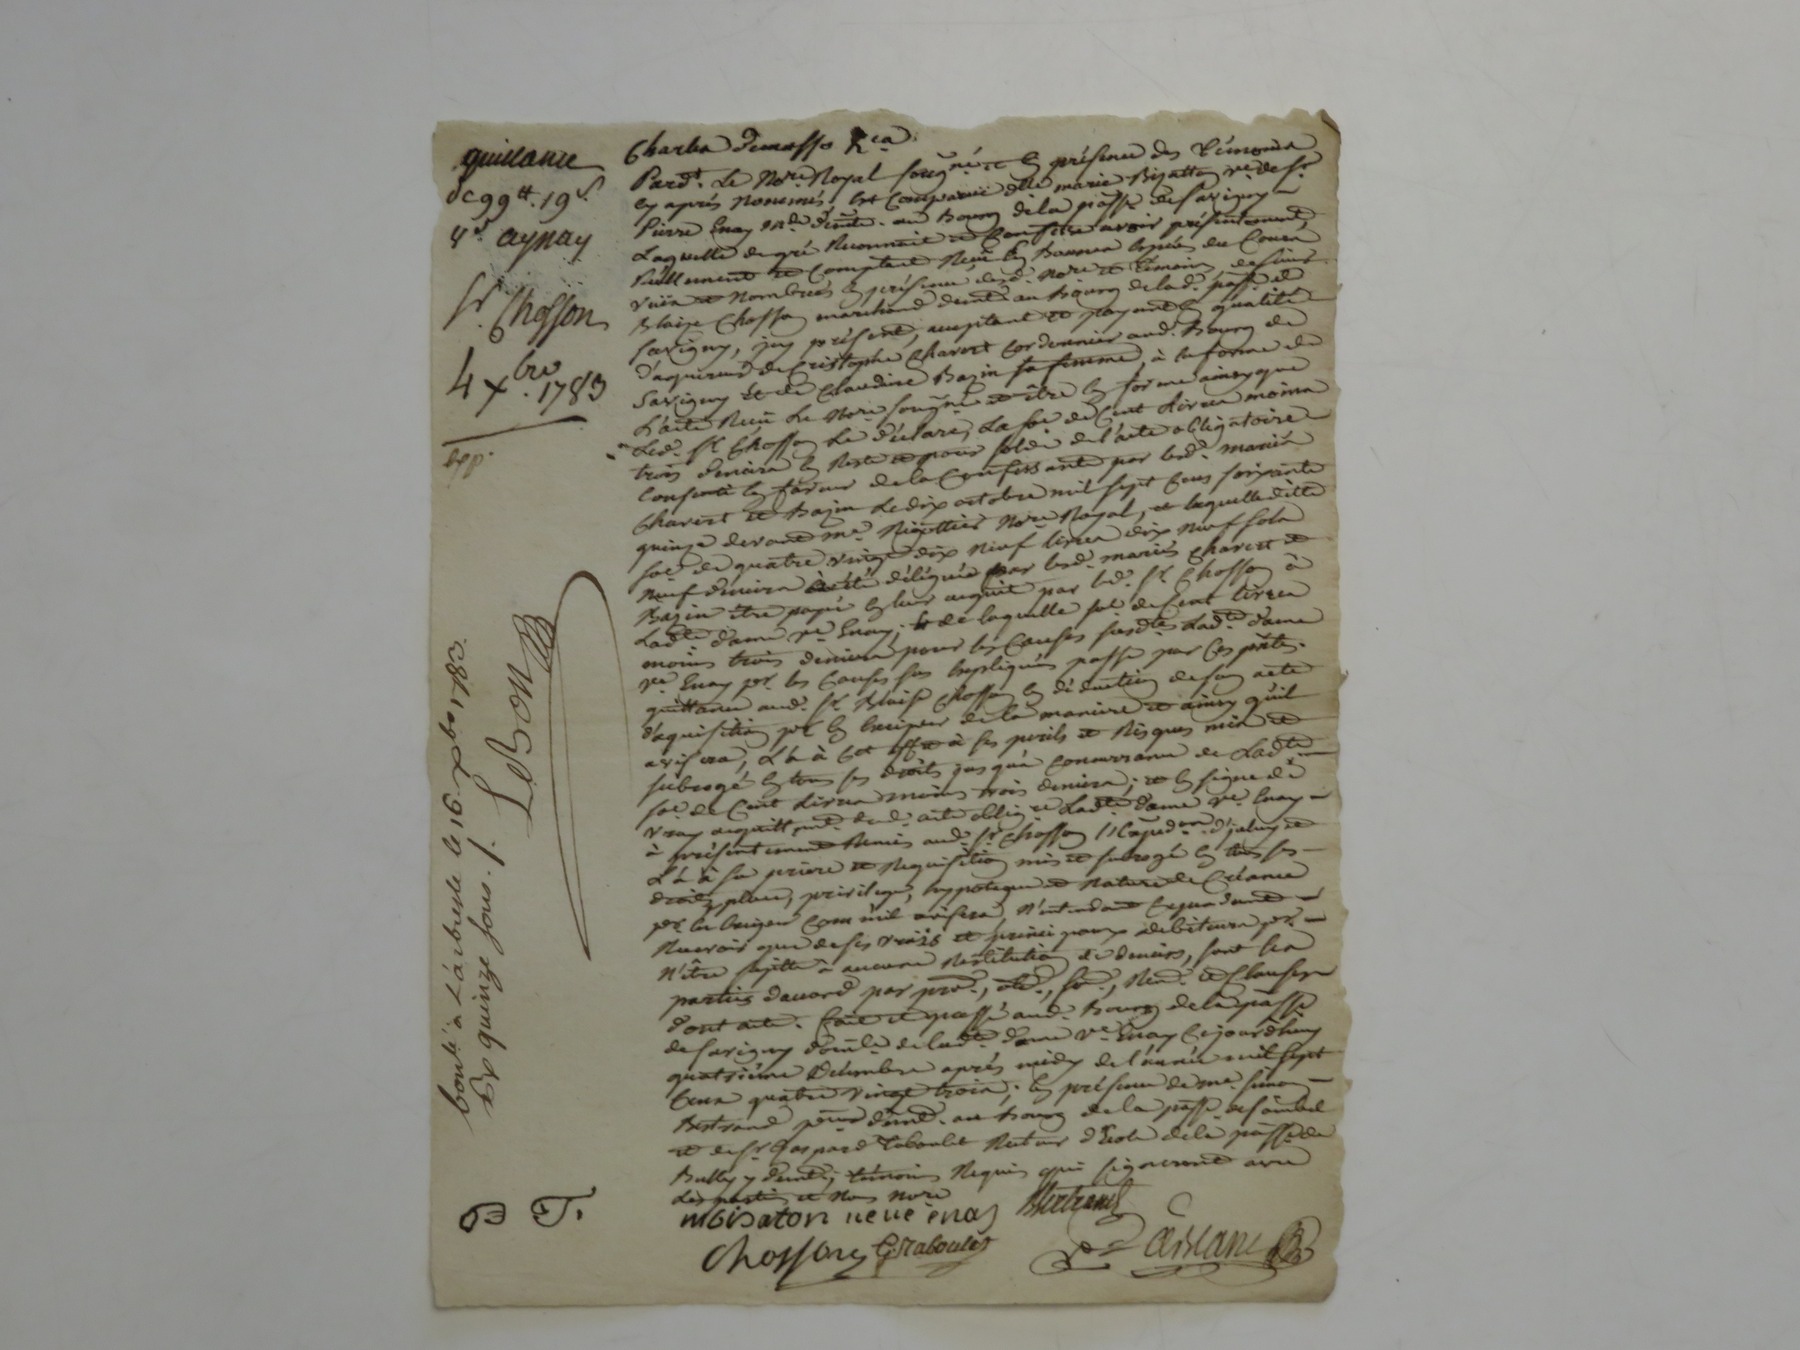 quittance
de 99tt. 19s.
9d. aynay
Sr. Chosson
4 Xbre. 1783
exp.
Pardt. Le Nore. Royal sousgné. et En présence des Témoins
Ey après Nommés, Est Comparüe dlle marie Bizatton ve. de Sr.
Pierre Enay mde. demte. au Bourg de la pässe de Savigny
Laquelle de gré Reconnoit et Confesse avoir présentement,
Reellement et Comptant Reçû En Bonnes Espèces du Cours
vuës et Nombrées En présence desd. Nore et témoins, de sieur
Blaise Chosson marchand demt. au Bourg de lad. pässe. de
Savigny, icy présent, acceptant et payant En qualité
d'aquereur de Cristophe Chavert Cordonnier aud. Bourg de
Savigny et de Claudine Bazin sa femme, à la forme de
L'acte Reçu Le Nore sousgné. et être En forme ainsy que
Led. Sr. Chosson Le déclare, La soe. de Cent Livres moins
trois deniers En Reste et pour solde de l'acte obligatoire
Consenti En faveur de la Confessante par lesd. mariés
Chavert et Bazin Le dix octobre mil sept Cens soixante
quinze devant me. Rigottier Nore. Royal, et laquelle ditte
soe. de quatre vingt dix Neuf livres dix Neuf sols
Neuf deniers à été déléguée par lesd. mariés Chavert et
Bazin être payée En leur acquit par led. Sr. Chosson à
Ladte. dame ve. Enay; Et de laquelle soe. de Cent livres
moins trois deniers pour les Causes susdtes. Ladte. dame
ve. Enay pr. les Causes sus Expliquées passe par Ces pntes.
quittance aud. Sr. Blaise Chosson En déduction de son acte
d'aquisition pr. En Exciper de la manière et ainsy qu'il
avisera, L'a à Cet effet à ses perils et Risques mis et
subrogé En tous ses droits jusqu'à Concurrance de Ladte.
soe. de Cent Livres moins trois deniers; et En signe de
vray acquittemt. dud. acte oblig.re Ladte. dame ve. Enay
à présentement Remis aud. Sr. Chosson l'Expedon. d'iceluy et
L'a à sa priere et Requisition mis et subrogé En tous ses
droits, place, privileges, hypoteque et Nature de Créance
pr. les Exiger Comm'il avisera, N'entendant Cependant
Recevoir que de ses vrais et principaux debiteurs pr.
N'être sujette à aucune Restitution de deniers, sont les
parties d'accord par pro., obl., so., Ren. et Clauses
dont acte. Fait et passé aud. Bourg de la pässe.
de Savigny domle. de ladte. dame ve. Enay Cejourdhuy
quatrième Décembre après midy de l'année mil sept
Cens quatre vingt trois; En présence de me. Simon
Bertrand demt. au Bourg de la pässe. de Sainbel
et de Sr. Gaspard Raboulet Recteur d'Ecole de la pässe. de
Bully y demt.; témoins Requis qui signeront avec
Les parties et Nous Nore.
Bertrand
Chosson G. Raboulet
Conlé à L'arbresle le 16 Xbre, 1783.
Rx quinze sous. /.
LeBon